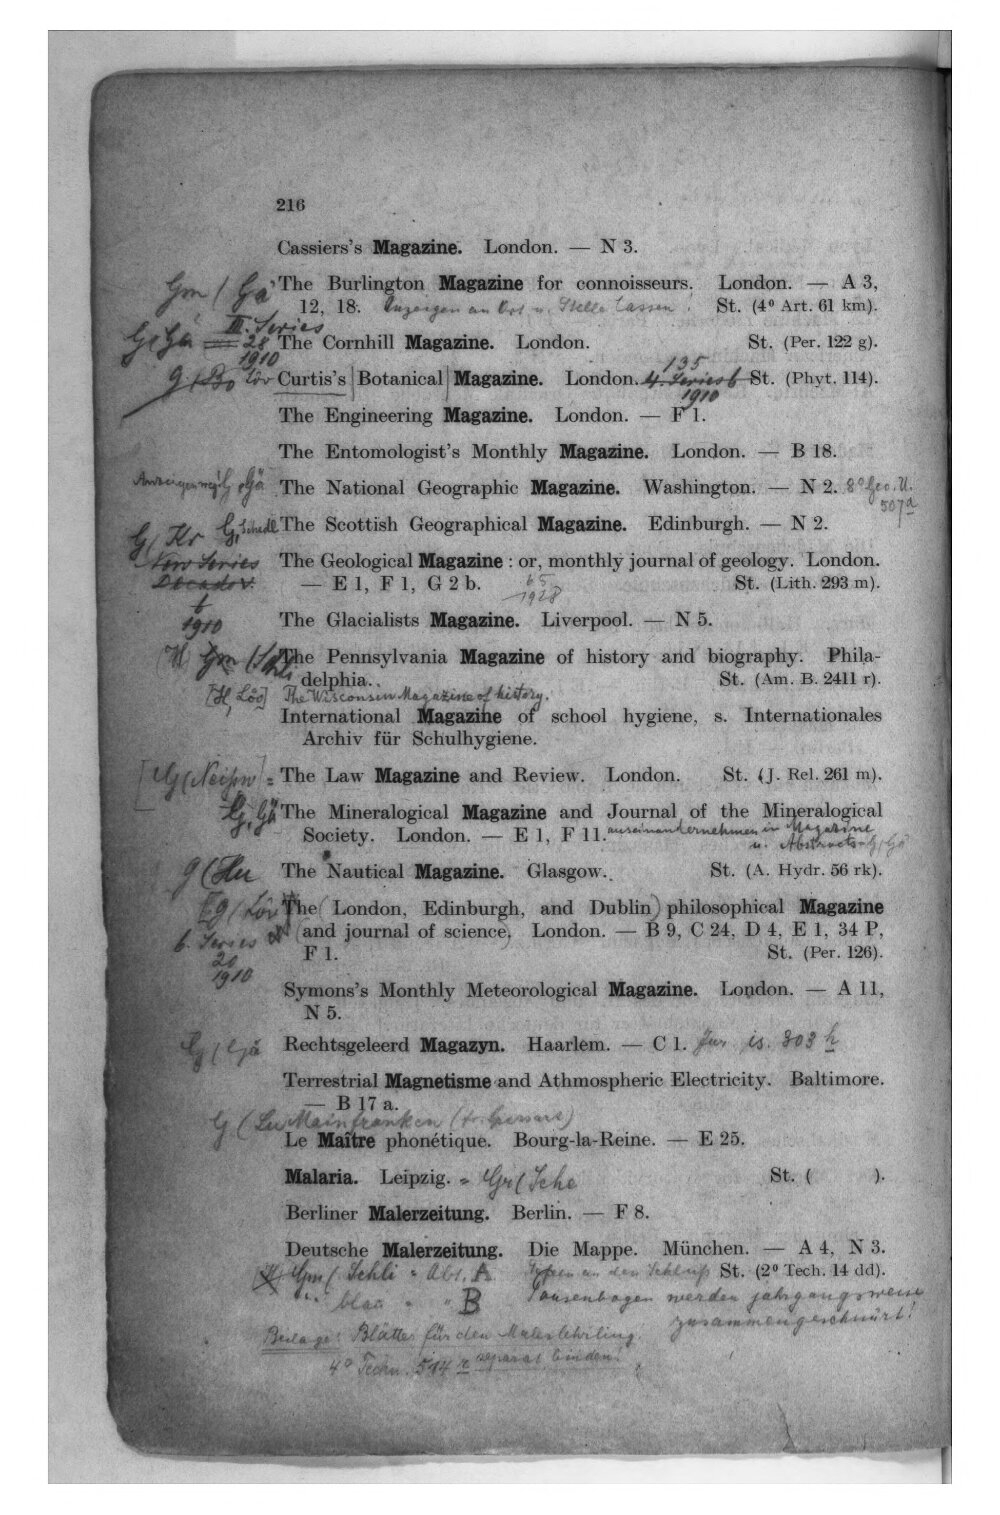 216
Cassiers's Magazine. London. — N 3.
Gm / Gä The Burlington Magazine for connoisseurs. London. — A 3,
12, 18. Anzeigen an Ort u. Stelle lassen! St. (4⁰ Art. 61 km).
III. Series
Gä 28 The Cornhill Magazine. London. St. (Per. 122 g).
1910
135
Löv Curtis's Botanical Magazine. London. 4. Series 6 St. (Phyt. 114).
1910
The Engineering Magazine. London. — F 1.
The Entomologist's Monthly Magazine. London. — B 18.
Gä The National Geographic Magazine. Washington. — N 2. 8⁰ Geo. U.
507 a
G, Schedl The Scottish Geographical Magazine. Edinburgh. — N 2.
G / Kr
New Series The Geological Magazine : or, monthly journal of geology. London.
Decade V. — E 1, F 1, G 2 b. 65 St. (Lith. 293 m).
1928
6
1910 The Glacialists Magazine. Liverpool. — N 5.
(H) Gm (Schli The Pennsylvania Magazine of history and biography. Phila-
delphia. St. (Am. B. 2411 r).
[H, Löv] The Wisconsin Magazine of history.
International Magazine of school hygiene, s. Internationales
Archiv für Schulhygiene.
The Law Magazine and Review. London. St. (J. Rel. 261 m).
G, Gä The Mineralogical Magazine and Journal of the Mineralogical
Society. London. — E 1, F 11. auseinandernehmen in Magazine
u. Abstracts G, Gä
g (Hu The Nautical Magazine. Glasgow. St. (A. Hydr. 56 rk).
g (Löv The (London, Edinburgh, and Dublin) philosophical Magazine
6. Series (and journal of science) London. — B 9, C 24, D 4, E 1, 34 P,
20 F 1. St. (Per. 126).
1910
Symons's Monthly Meteorological Magazine. London. — A 11,
N 5.
G / Gä Rechtsgeleerd Magazyn. Haarlem. — C 1. Jur. is. 303 h
Terrestrial Magnetisme and Athmospheric Electricity. Baltimore.
— B 17 a.
G (Lu Mainfranken
Le Maître phonétique. Bourg-la-Reine. — E 25.
Malaria. Leipzig. = Gr (Sche St. ( ).
Berliner Malerzeitung. Berlin. — F 8.
Deutsche Malerzeitung. Die Mappe. München. — A 4, N 3.
Gm / Schli = Abt. A an den Schluß St. (2⁰ Tech. 14 dd).
" blau " " B Pausenbogen werden jahrgangsweise
zusammengeschnürt!
Beilage: Blätter für den Malerlehrling.
4⁰ Techn. 514 r separat binden!